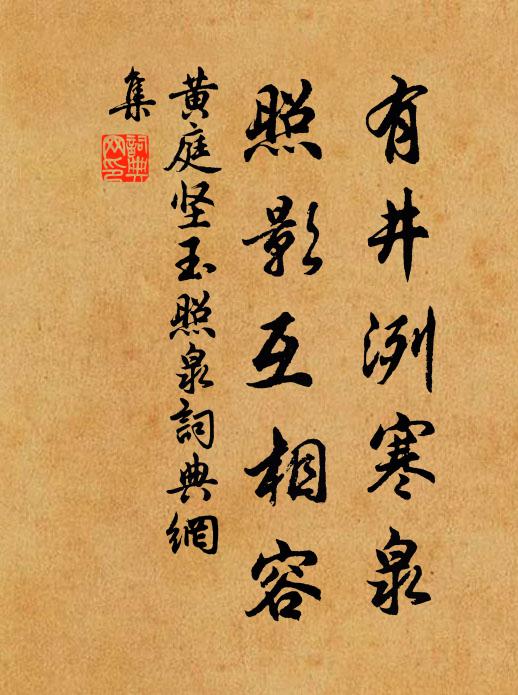 有井洌寒泉
照影互相容
黄庭坚玉照泉詞典網
集
詞典网印